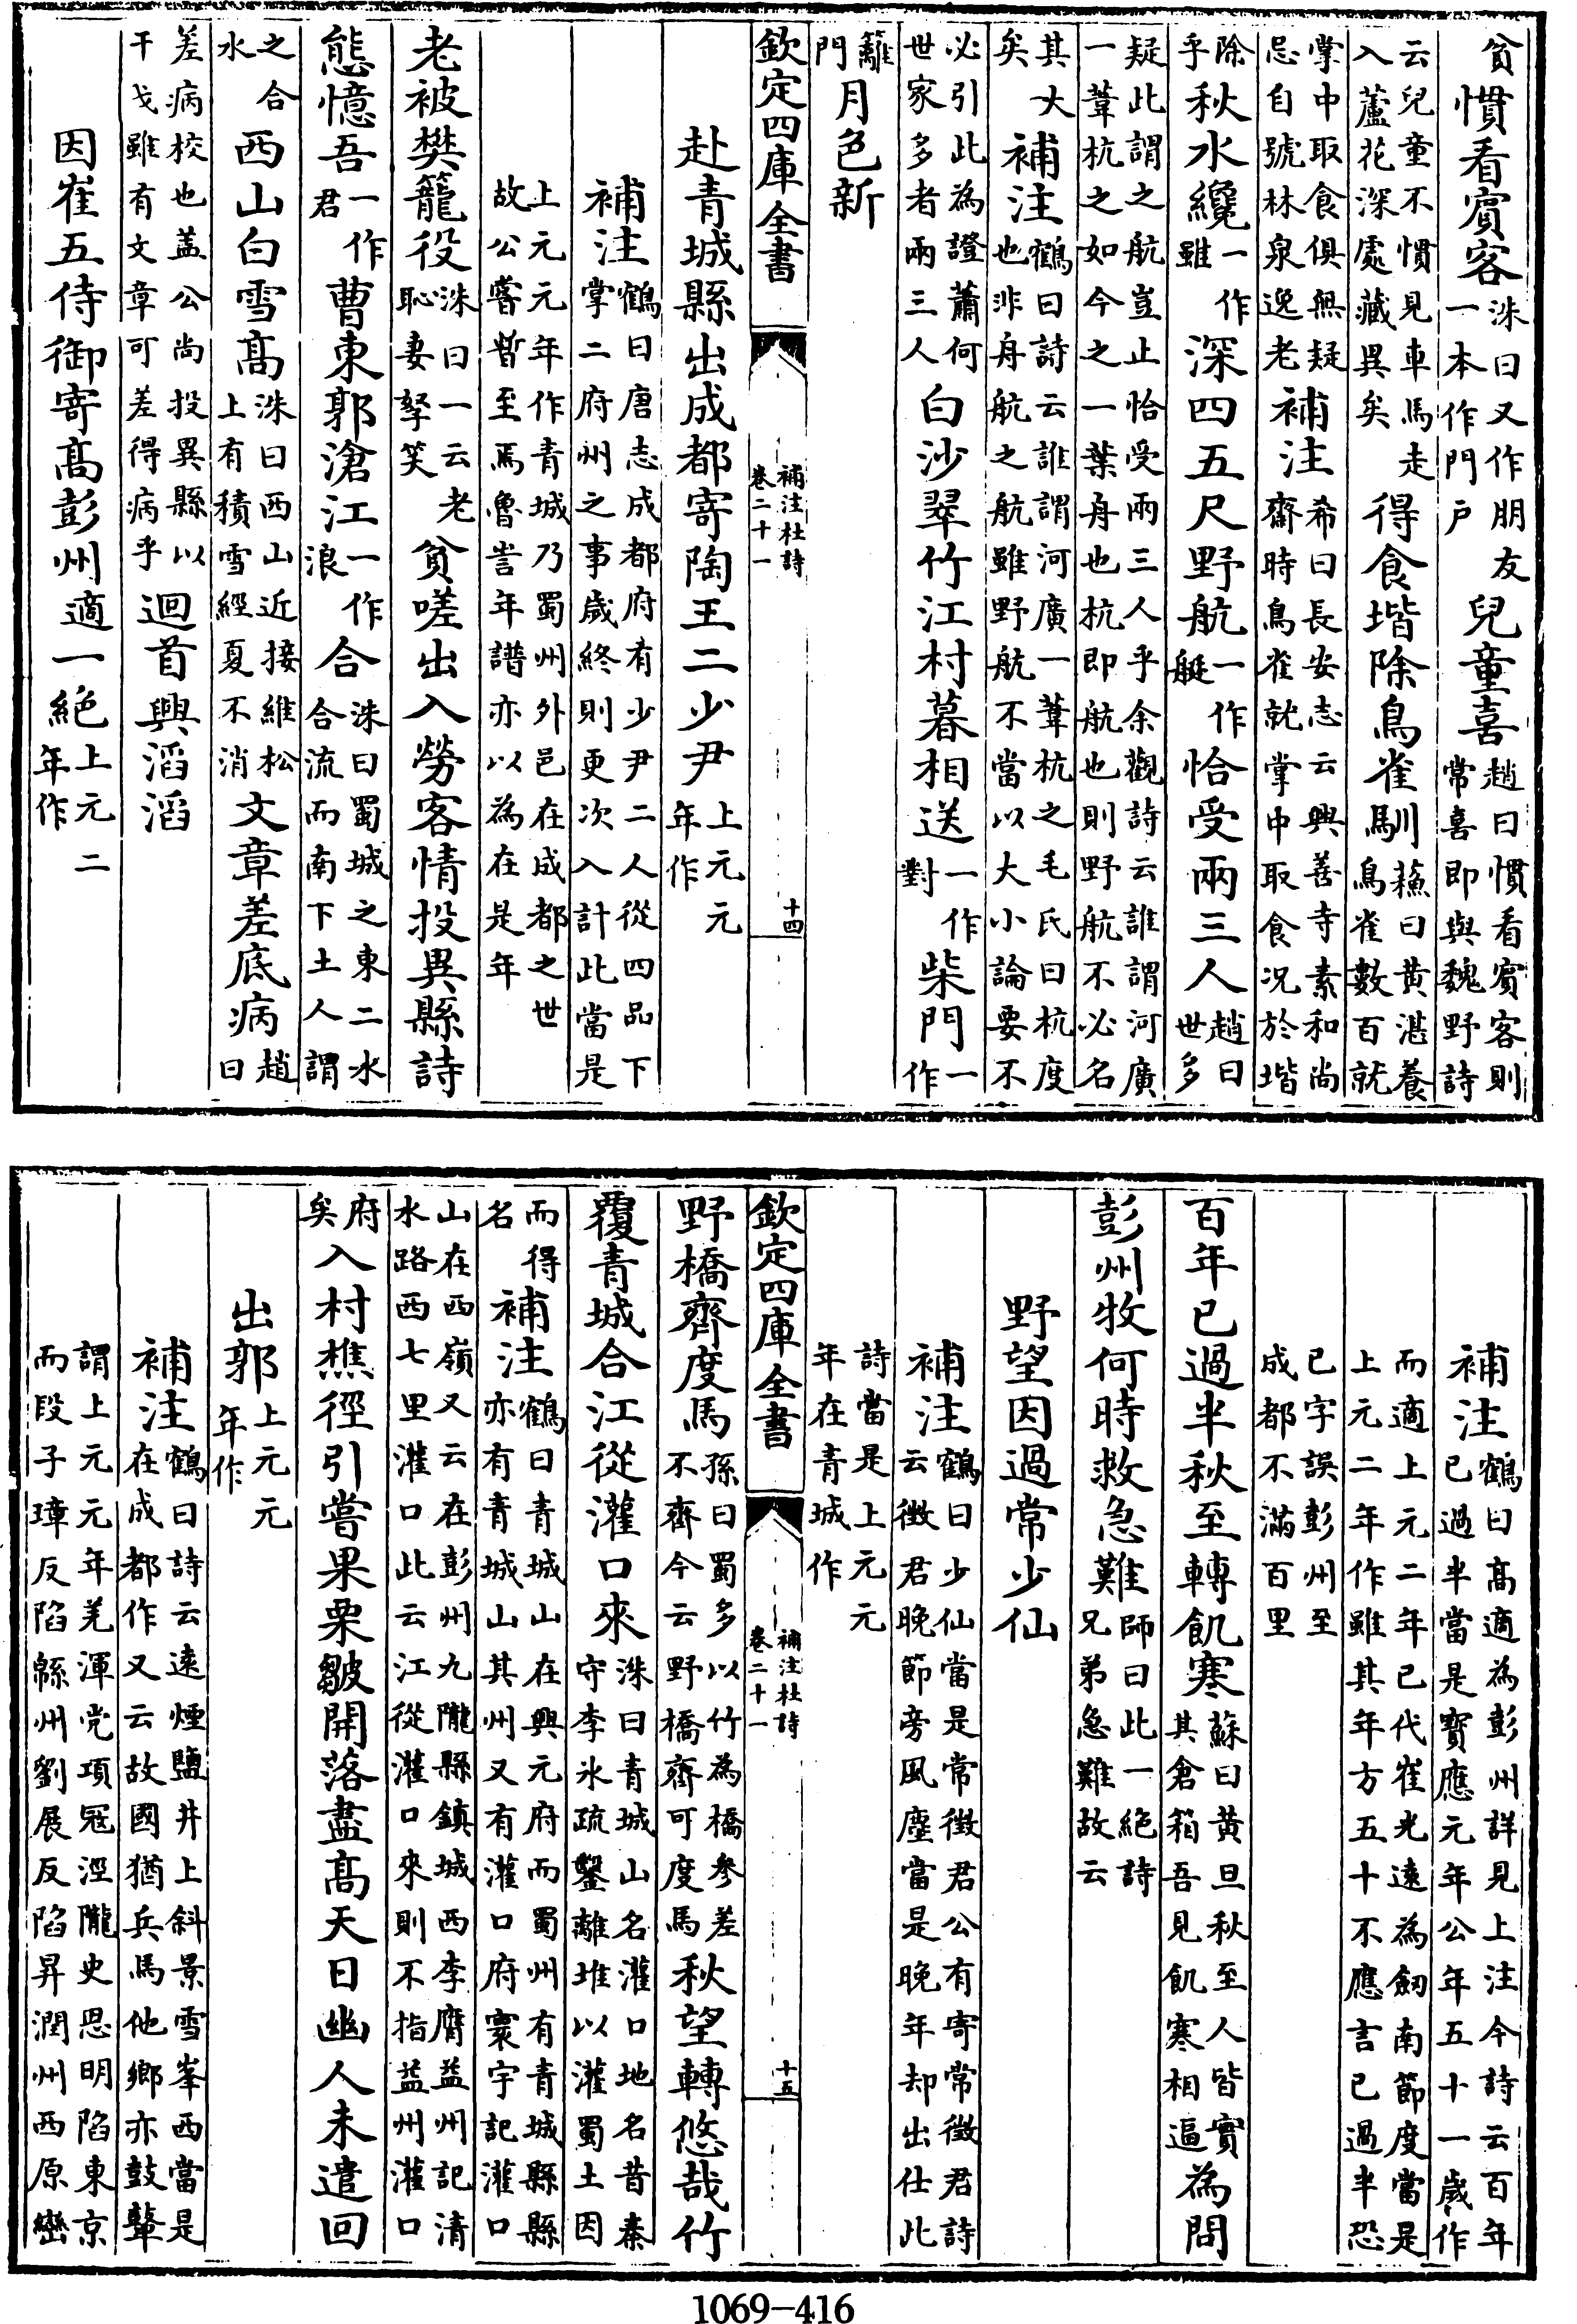 貧慣看賓客洙曰又作朋友一本作門户兒童喜趙曰慣看賓客則常喜即與魏野詩
云兒童不慣見車馬走入蘆花深處藏異矣得食堦除鳥雀馴蘓曰黄湛養鳥雀數百就
掌中取食俱無疑忌自號林泉逸老補注希曰長安志云興善寺素和尚齋時鳥雀就掌中取食况於堦
除乎秋水纔一作雖深四五尺野航一作艇恰受兩三人趙曰世多
疑此謂之航豈止恰受兩三人乎余觀詩云誰謂河廣一葦杭之如今之一葉舟也杭即航也則野航不必名
其大矣補注鶴曰詩云誰謂河廣一葦杭之毛氏曰杭度也非舟航之航雖野航不當以大小論要不
必引此為證蕭何世家多者兩三人白沙翠竹江村暮相送一作對柴門一作
籬門月色新
欽定四庫全書 補注杜詩 卷二十一 十四
赴青城縣出成都寄陶王二少尹上元元年作
補注鶴曰唐志成都府有少尹二人從四品下掌二府州之事歲終則更次入計此當是
上元元年作青城乃蜀州外邑在成都之世故公嘗暫至焉魯訔年譜亦以為在是年
老被樊籠役洙曰一云老恥妻孥笑貧嗟出入勞客情投異縣詩
態憶吾一作君曹東郭滄江一作浪合洙曰蜀城之東二水合流而南下土人謂
之合水西山白雪髙洙曰西山近接維松上有積雪經夏不消文章差底病趙曰
差病校也蓋公尚投異縣以干戈雖有文章可差得病乎迴首興滔滔
因崔五侍御寄髙彭州適一絶上元二年作
補注鶴曰髙適為彭州詳見上注今詩云百年已過半當是寶應元年公年五十一歲作
而適上元二年已代崔光遠為劒南節度當是上元二年作雖其年方五十不應言已過半恐
已字誤彭州至成都不滿百里
百年已過半秋至轉飢寒蘇曰黄旦秋至人皆實其倉箱吾見飢寒相逼為問
彭州牧何時救急難師曰此一絶詩兄弟急難故云
野望因過常少仙
補注鶴曰少仙當是常徴君公有寄常徴君詩云徴君晚節旁風塵當是晚年却出仕此
詩當是上元元年在青城作
欽定四庫全書 補注杜詩 卷二十一 十五
野橋齊度馬孫曰蜀多以竹為橋參差不齊今云野橋齊可度馬秋望轉悠哉竹
覆青城合江從灌口來洙曰青城山名灌口地名昔秦守李氷疏鑿離堆以灌蜀土因
而得名補注鶴曰青城山在興元府而蜀州有青城縣縣亦有青城山其州又有灌口府寰宇記灌口
山在西嶺又云在彭州九隴縣鎮城西李膺益州記清水路西七里灌口此云江從灌口來則不指益州灌口
府矣入村樵徑引嘗果栗皺開落盡髙天日幽人未遣回
出郭上元元年作
補注鶴曰詩云遠煙鹽井上斜景雪峯西當是在成都作又云故國猶兵馬他鄉亦鼓鼙
謂上元元年羌渾党項冦涇隴史思明陷東京而段子璋反陷綿州劉展反陷昇潤州西原蠻
1069-416